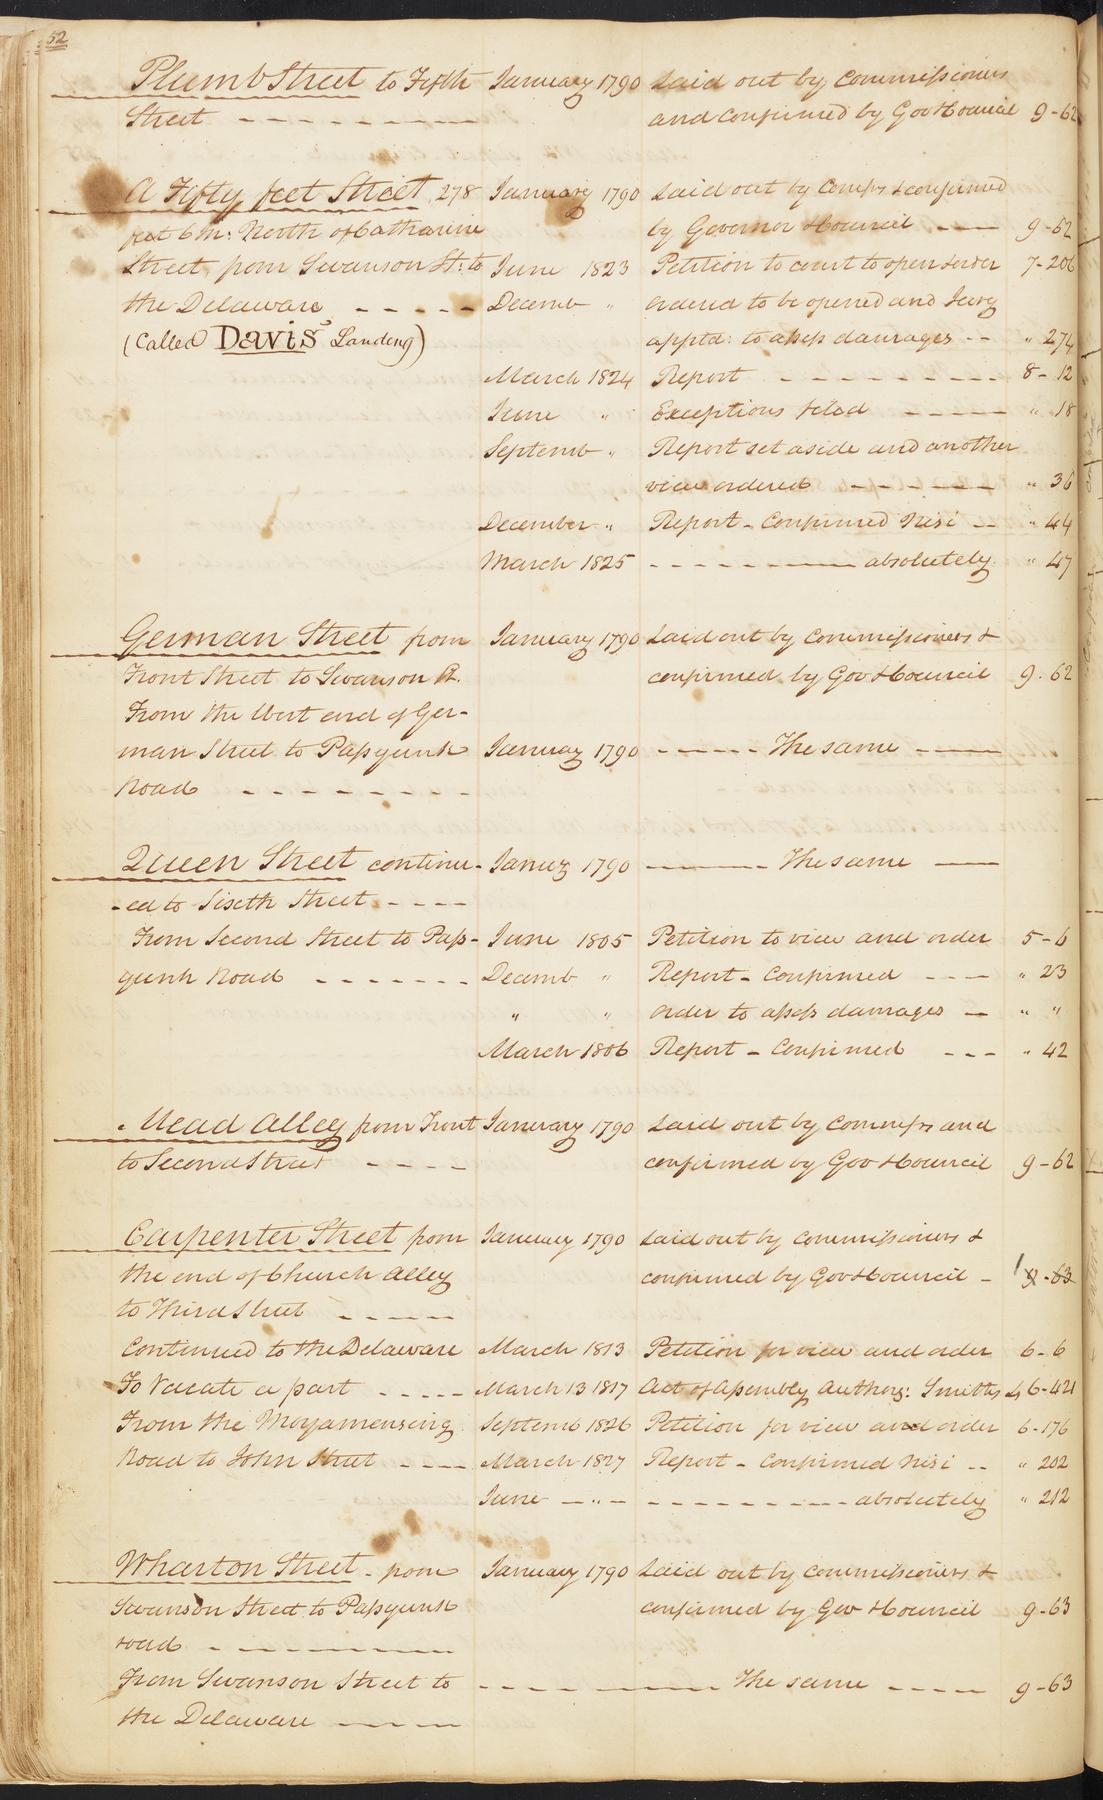 52
Plumb Street to Fifth January 1790 Laid out by Commissioners
Street - - - - - - - - - and confirmed by Gov & Council 9-62
A Fifty feet Street 278 January 1790 Laid out by Comrs & confirmed
feet 6 in: North of Catharine by Governor & Council - - - 9-62
Street from Swanson St: to June 1823 Petition to court to open under 7-206
the Delaware - - - - - Decemb " Ordered to be opened and Jury
(Called Davis' Landing) apptd: to assess damages - - " 274
March 1824 Report - - - - - - - - - 8-12
June " Exceptions filed - - - - - " 18
Septemb " Report set aside and another
view ordered - - - - - - " 36
December " Report - Confirmed Nisi - - " 44
March 1825 - - - - - - - - absolutely " 47
German Street from January 1790 Laid out by Commissioners &
Front Street to Swanson St. confirmed by Gov & Council 9-62
From the West end of Ger-
man Street to Passyunk January 1790 - - - - - The same - - - -
Road - - - - - - - -
Queen Street continu- Januy 1790 - - - - - The same - - -
-ed to Sixth Street - - - -
From Second Street to Pass- June 1805 Petition to view and order 5-6
yunk Road - - - - - - - Decemb " Report - Confirmed - - - " 23
" " Order to assess damages - " "
March 1806 Report - Confirmed - - - " 42
Mead Alley from Front January 1790 Laid out by Commrs and
to Second Street - - - - confirmed by Gov & Council 9-62
Carpenter Street from January 1790 Laid out by Commissioners &
the end of Church Alley confirmed by Gov & Council - 9-63
to Third Street - - - - -
Continued to the Delaware March 1813 Petition for view and order 6-6
To Vacate a part - - - - - March 13 1817 Act of Assembly Authory: Smiths L 6-421
From the Moyamensing Septemb 1826 Petition for view and order 6-176
Road to John Street - - - - March 1827 Report - Confirmed Nisi - - " 202
June - " - - - - - - - - - - absolutely " 212
Wharton Street - from January 1790 Laid out by Commissioners &
Swanson Street to Passyunk confirmed by Gov & Council 9-63
road - - - - - - - -
From Swanson Street to - - - - - - - - The same - - - - 9-63
the Delaware - - - -